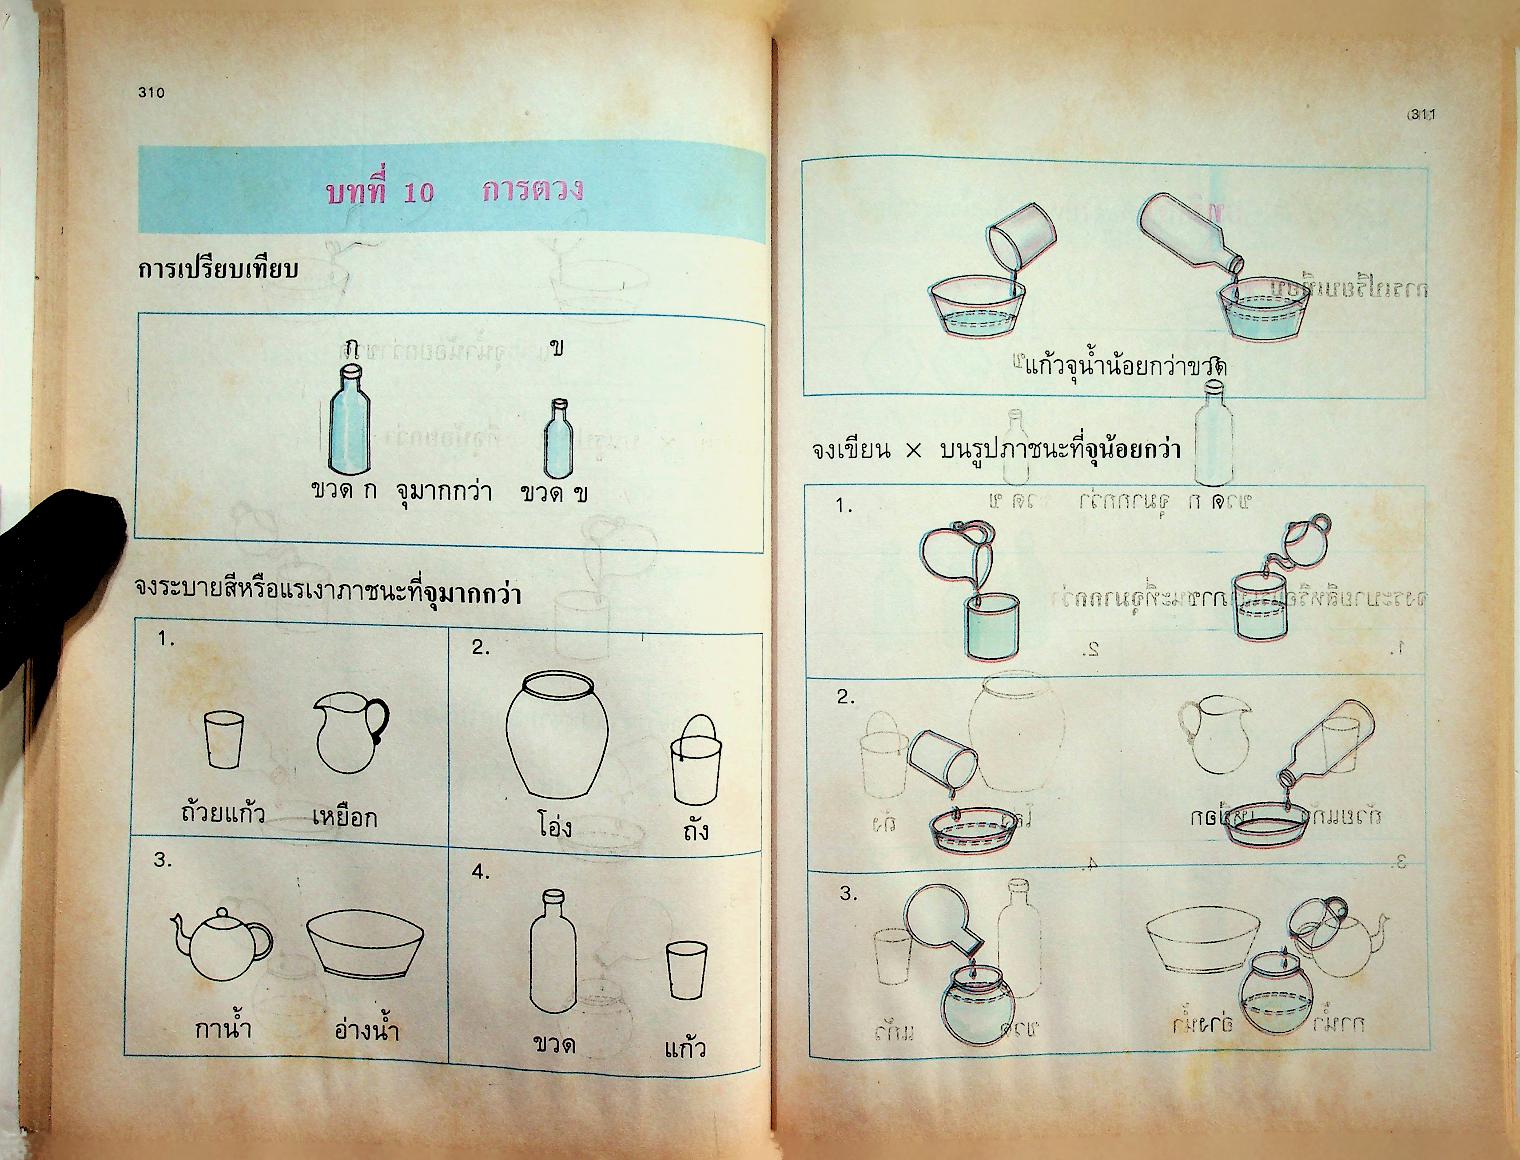 310
บทที่ 10 การตวง
การเปรียบเทียบ
ก ข
ขวด ก จุมากกว่า ขวด ข
จงระบายสีหรือแรเงาภาชนะที่จุมากกว่า
1. 2.
ถ้วยแก้ว เหยือก โอ่ง ถัง
3. 4.
กาน้ำ อ่างน้ำ ขวด แก้ว
311
แก้วจุน้ำน้อยกว่าขวด
จงเขียน × บนรูปภาชนะที่จุน้อยกว่า
1.
2.
3.